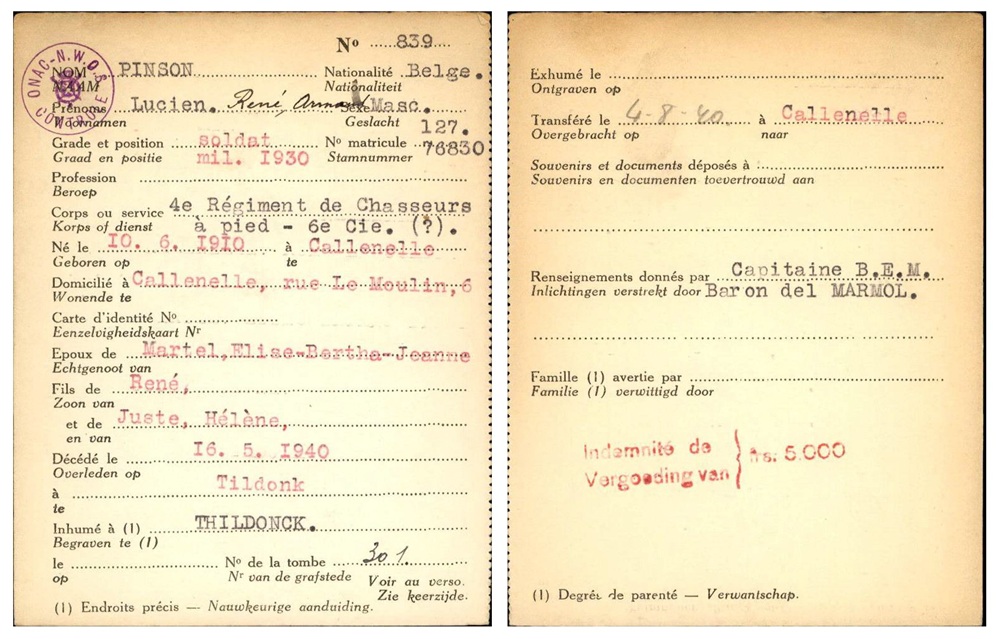 No 839
ONAC-N.W.O.S.
CONTROLE
NOM PINSON Nationalité Belge.
NAAM Nationaliteit
Prénoms Lucien. René, Armand Sexe Masc.
Voornamen Geslacht
127.
Grade et position soldat No matricule 76830
Graad en positie mil. 1930 Stamnummer
Profession
Beroep
Corps ou service 4e Régiment de Chasseurs
Korps of dienst à pied - 6e Cie. (?).
Né le 10. 6. 1910 à Callenelle
Geboren op te
Domicilié à Callenelle, rue Le Moulin,6
Wonende te
Carte d'identité No
Eenzelvigheidskaart Nr
Epoux de Martel,Elise-Bertha-Jeanne
Echtgenoot van
Fils de René,
Zoon van
et de Juste, Hélène,
en van
Décédé le 16. 5. 1940
Overleden op
à Tildonk
te
Inhumé à (1) THILDONCK.
Begraven te (1)
le No de la tombe 301.
op Nr van de grafstede Voir au verso.
Zie keerzijde.
(1) Endroits précis — Nauwkeurige aanduiding.
Exhumé le
Ontgraven op
Transféré le 4-8-40. à Callenelle
Overgebracht op naar
Souvenirs et documents déposés à
Souvenirs en documenten toevertrouwd aan
Renseignements donnés par Capitaine B.E.M.
Inlichtingen verstrekt door Baron del MARMOL.
Famille (1) avertie par
Familie (1) verwittigd door
Indemnité de
Vergoeding van } frs. 5.000
(1) Degrés de parenté — Verwantschap.